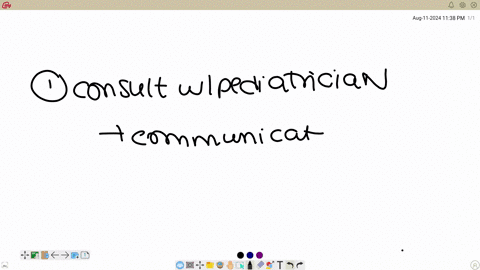 Aug-11-2024 11:38 PM 1/1
① consult w/pediatrician
→ communicat
T